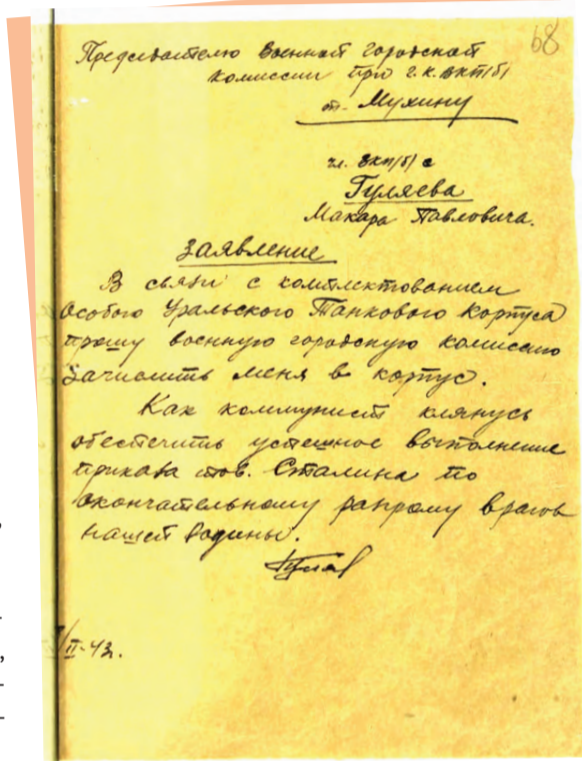 68
Председателю Военной городской
комиссии при г.к. ВКП/б/
т. Мухину
чл. ВКП/б/ с
Гуляева
Макара Павловича.
Заявление
В связи с комплектованием
Особого Уральского Танкового Корпуса
прошу военную городскую комиссию
зачислить меня в корпус.
Как коммунист клянусь
обеспечить успешное выполнение
приказа тов. Сталина по
окончательному разгрому врагов
нашей родины.
/II-43г.